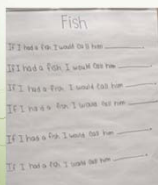 Fish
If I had a fish I would call him
If I had a fish I would call him
If I had a fish I would call him
If I had a fish I would call him
If I had a fish I would call him
If I had a fish I would call him